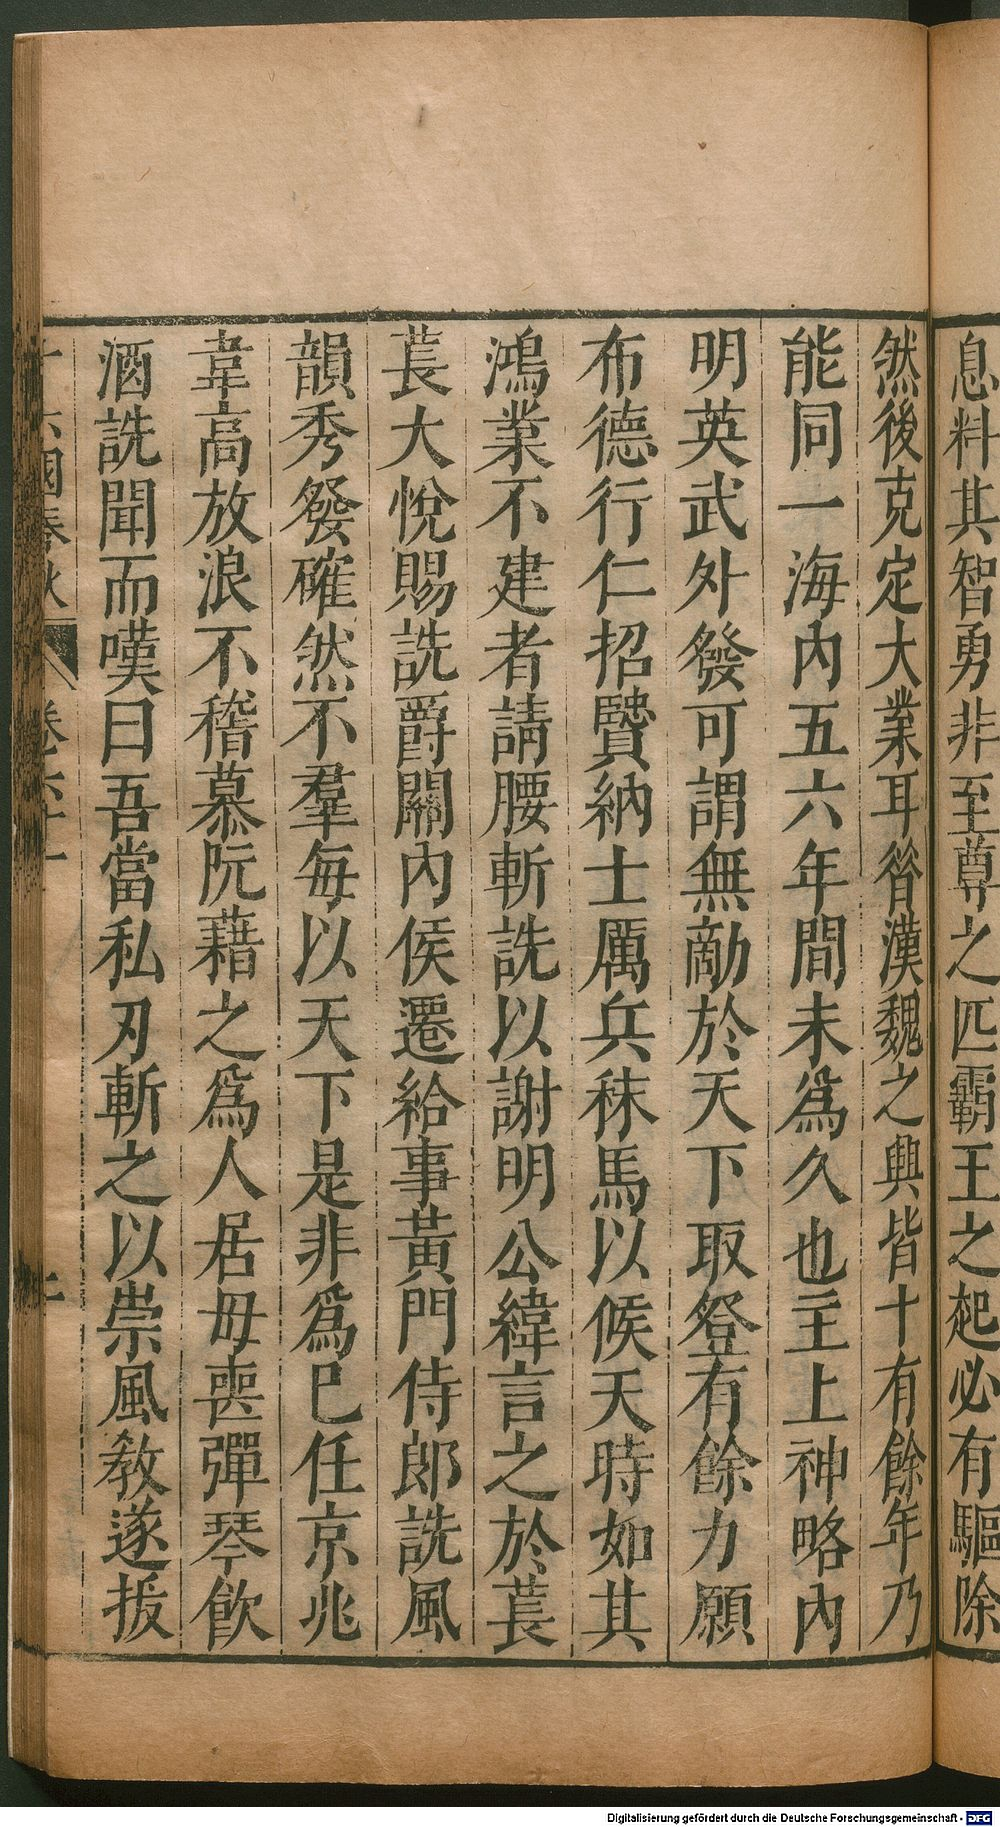 息料其智勇非至尊之匹霸王之起必有驅除
然後克定大業耳昝漢魏之興皆十有餘年乃
能同一海內五六年間未爲久也主上神略內
明英武外發可謂無敵於天下取登有餘力願
布德行仁招賢納士厲兵秣馬以候天時如其
鴻業不建者請腰斬詵以謝明公緯言之於萇
萇大悅賜詵爵關內侯遷給事黃門侍郎詵風
韻秀發確然不羣每以天下是非爲巳任京兆
韋高放浪不稽慕阮藉之爲人居母喪彈琴飲
酒詵聞而嘆曰吾當私刃斬之以崇風敎遂扳
十六國春秋 卷六十一
Digitalisierung gefördert durch die Deutsche Forschungsgemeinschaft - DFG